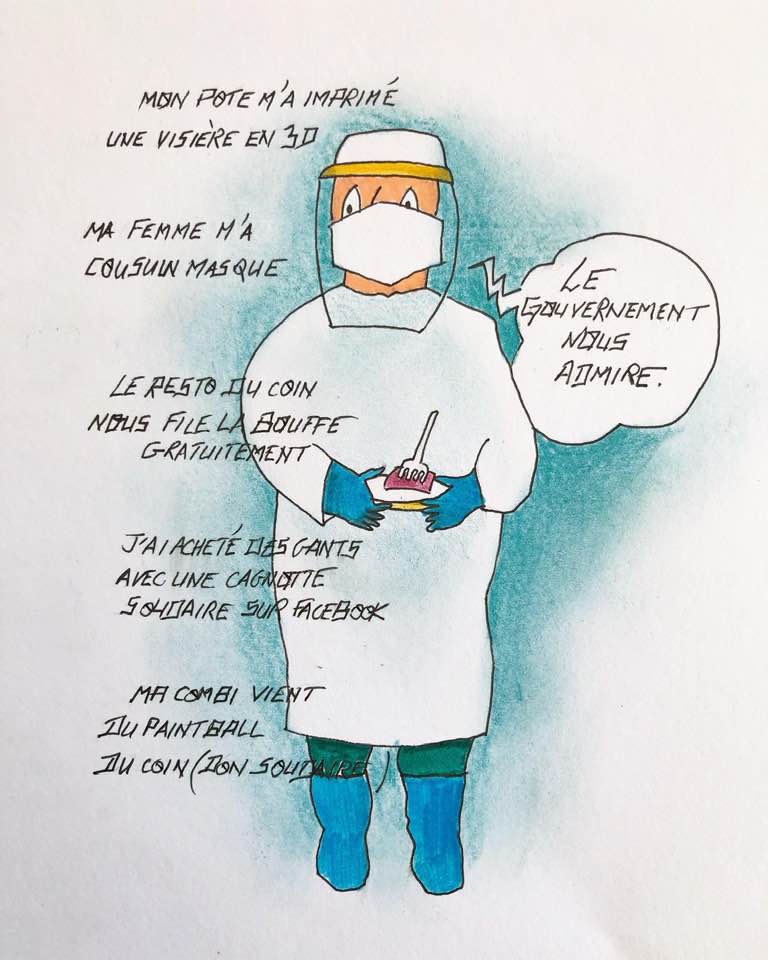 MON POTE M'A IMPRIMÉ
UNE VISIÈRE EN 3D
MA FEMME M'A
COUSU UN MASQUE
LE GOUVERNEMENT
NOUS
ADMIRE.
LE RESTO DU COIN
NOUS FILE LA BOUFFE
GRATUITEMENT
J'AI ACHETÉ DES GANTS
AVEC UNE CAGNOTTE
SOLIDAIRE SUR FACEBOOK
MA COMBI VIENT
DU PAINTBALL
DU COIN (DON SOLIDAIRE)